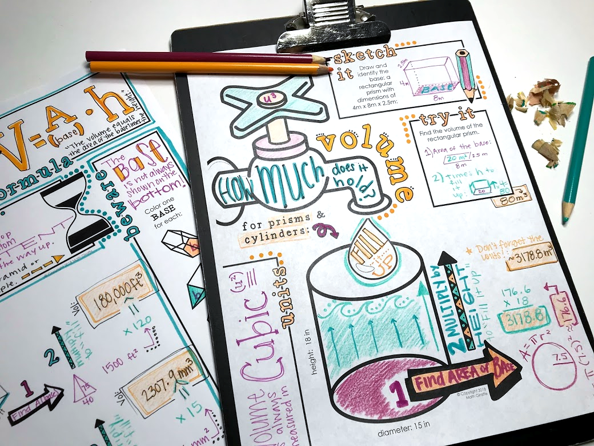 V=A(base)·h
"The volume equals
the area of the base times
formula
beware
The
BASE
is not always
shown on the
bottom!
Color one
BASE
for each:
the way up.
180,000 ft³
x 120
1500 ft²
2307.9 mm³
1
2
sketch
it
Draw and
identify the
base: a
rectangular
prism with
dimensions of
4m x 8m x 2.5m:
BASE
8m
try it
Find the volume of the
rectangular prism.
1) Area of the base:
20 m²
2.5m
8m
2) times h to
fill
it
up
80m³
u³
volume
How much does it hold?
for prisms &
cylinders:
Fill
it
UP
units
Volume
is always
measured in
Cubic
(u³)
height: 18 in
diameter: 15 in
2 MULTIPLY by
HEIGHT
TO FILL IT UP
1 FIND AREA OF BASE
* Don't forget the
units!
~3178.8 in³
176.6
x 18
3178.8
176.6
A = πr²
7.5
© Copyright 2018
Math Giraffe